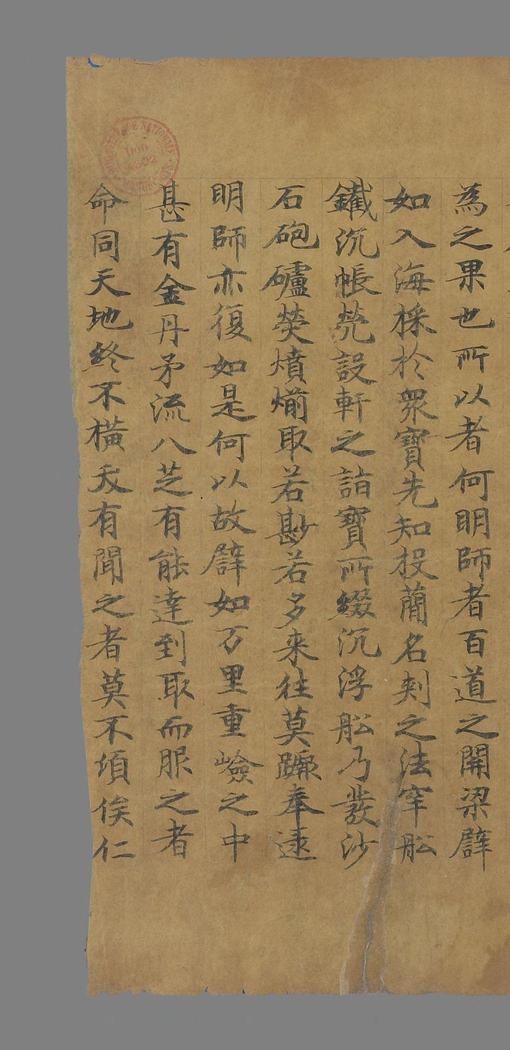 為之果也所以者何明師者百道之開梁譬
如入海採於眾寶先知投蘭名刾之法窂舩
鐵沉帳设軒之詣寶所綴沉浮舩乃發沙
石砲爐熒燌煎取若尠若多来往莫躓奉遠
明師亦復如是何以故譬如万里重嶮之中
甚有金丹矛流八芝有能達到取而服之者
命同天地終不橫夭有聞之者莫不傾俟仁